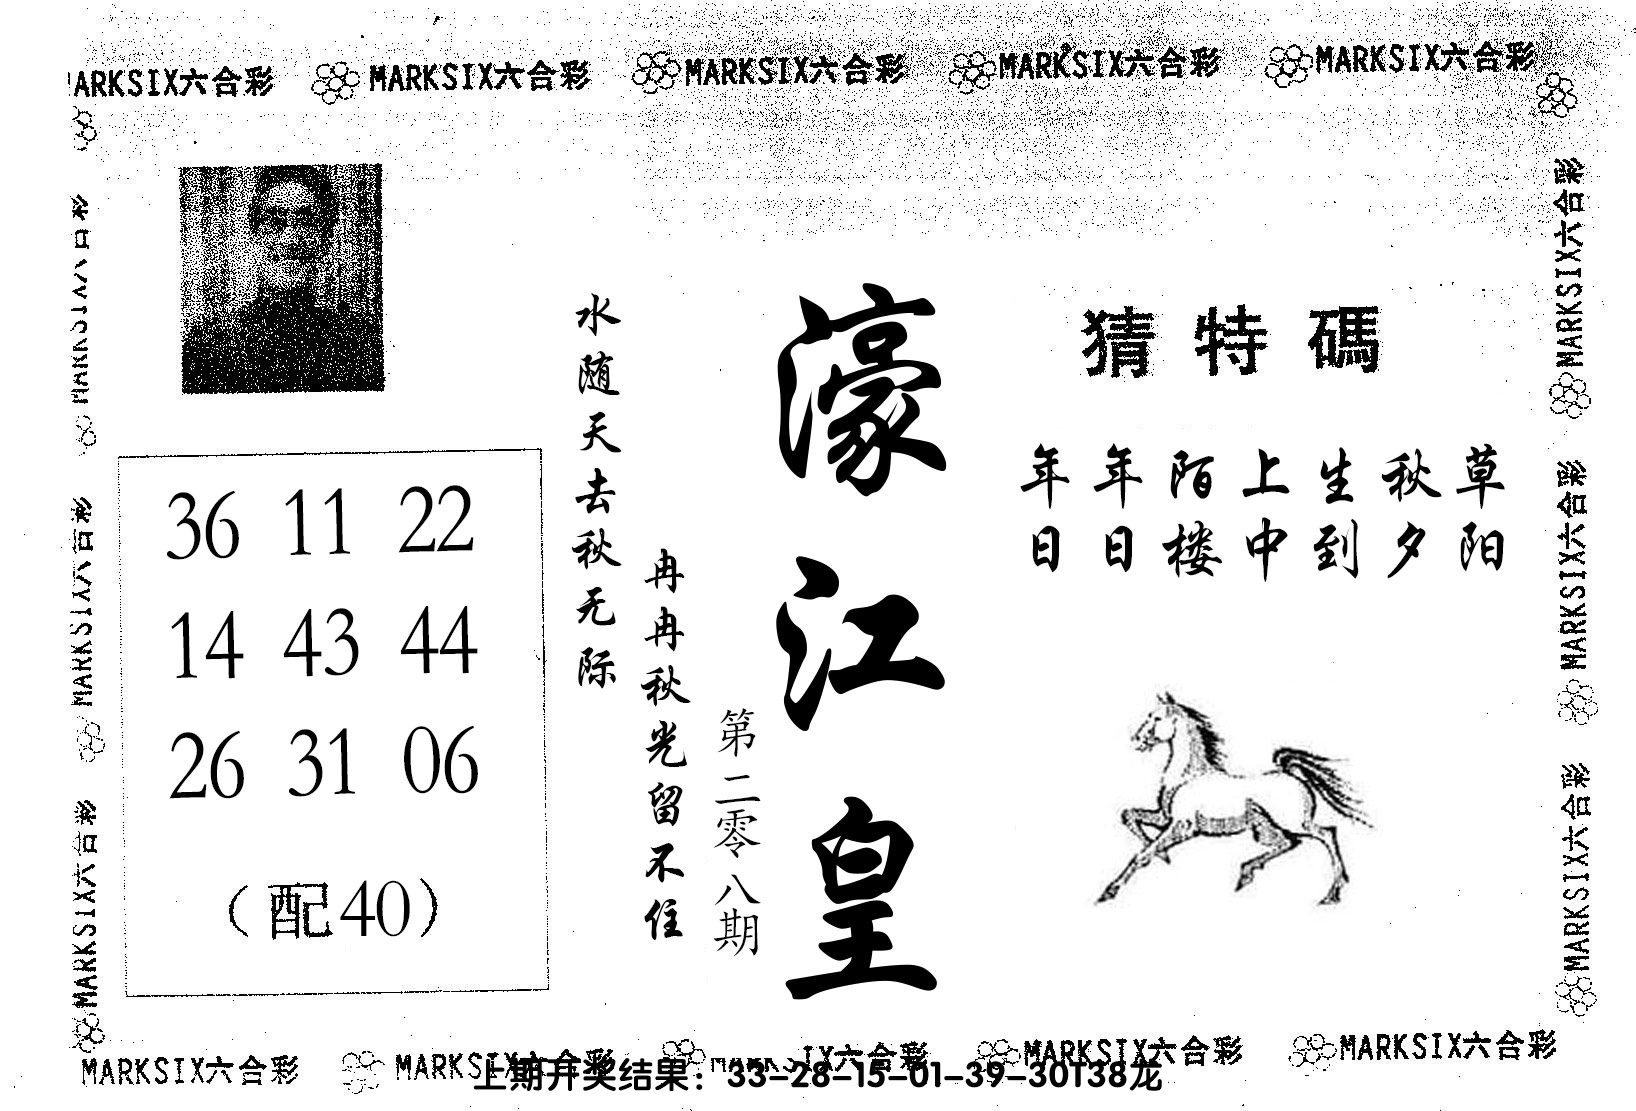 MARKSIX六合彩 MARKSIX六合彩 MARKSIX六合彩 MARKSIX六合彩 MARKSIX六合彩
猜特碼
年年陌上生秋草
日日楼中到夕阳
濠江皇
第二零八期
冉冉秋光留不住
水随天去秋无际
36 11 22
14 43 44
26 31 06
（配40）
MARKSIX六合彩
MARKSIX六合彩
MARKSIX六合彩
MARKSIX六合彩
MARKSIX六合彩
MARKSIX六合彩
MARKSIX六合彩 MARKSIX六合彩 MARKSIX六合彩 MARKSIX六合彩
上期开奖结果：33-28-15-01-39-30T38龙